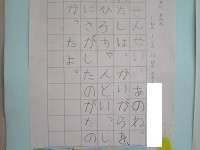 せんせい、あのね。
わたしは、かいがらあ
ひろちゃんといっし
にさがしたのがたの
かったよ。